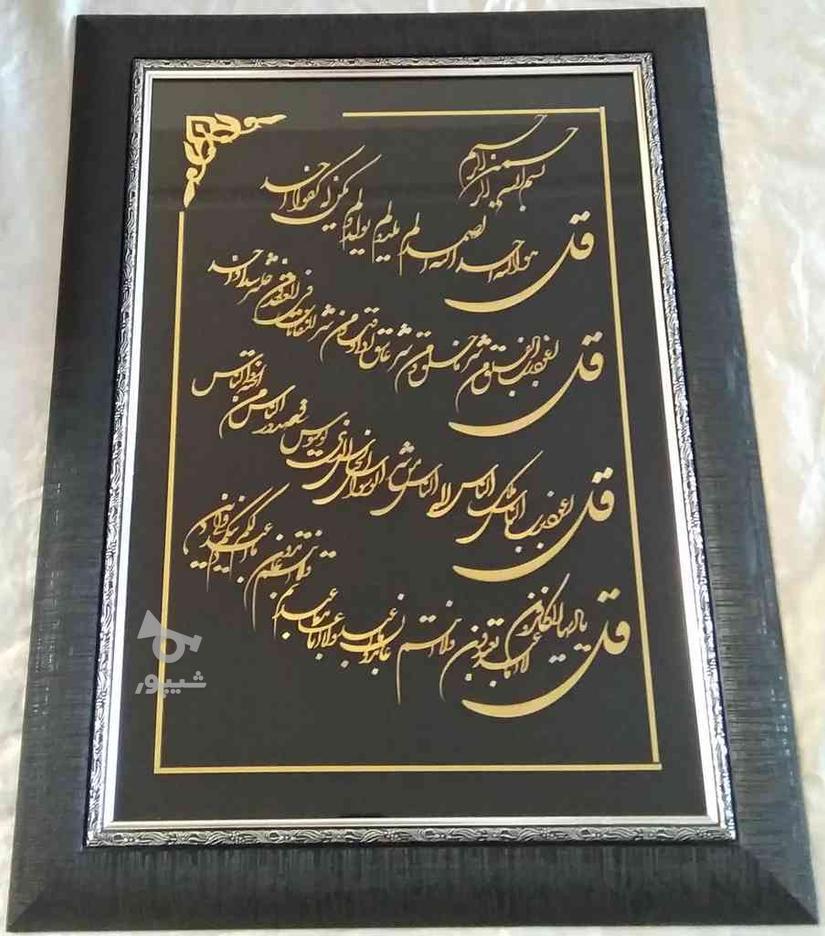 بسم الله الرحمن الرحیم
قل هو الله احد الله الصمد لم یلد و لم یولد و لم یکن له کفوا احد
قل اعوذ برب الفلق من شر ما خلق و من شر غاسق اذا وقب و من شر النفاثات فی العقد و من شر حاسد اذا حسد
قل اعوذ برب الناس ملک الناس اله الناس من شر الوسواس الخناس الذی یوسوس فی صدور الناس من الجنة و الناس
قل یا ایها الکافرون لا اعبد ما تعبدون و لا انتم عابدون ما اعبد و لا انا عابد ما عبدتم و لا انتم عابدون ما اعبد لکم دینکم ولی دین
شیپور